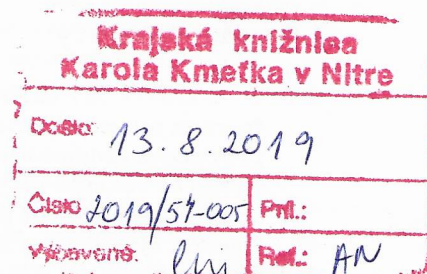 Krajská knižnica
Karola Kmeťka v Nitre
Došlo: 13. 8. 2019
Číslo 2019/57-005 Príl.:
Vybavené: Ref.: AN